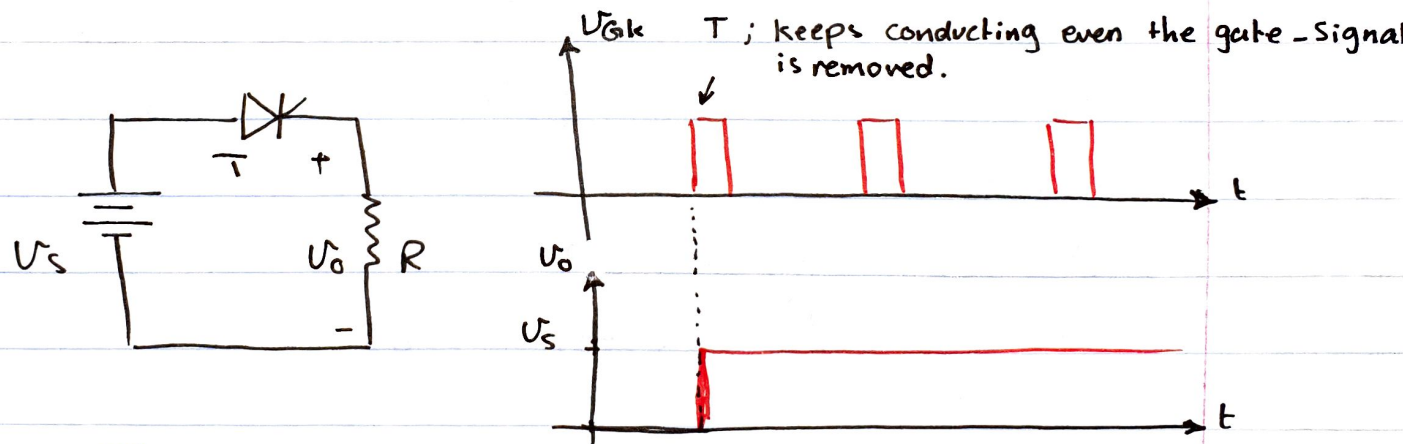 VGk
T ; keeps conducting even the gate-Signal
is removed.
T
+
t
Vs
Vo
R
Vo
-
Vs
t